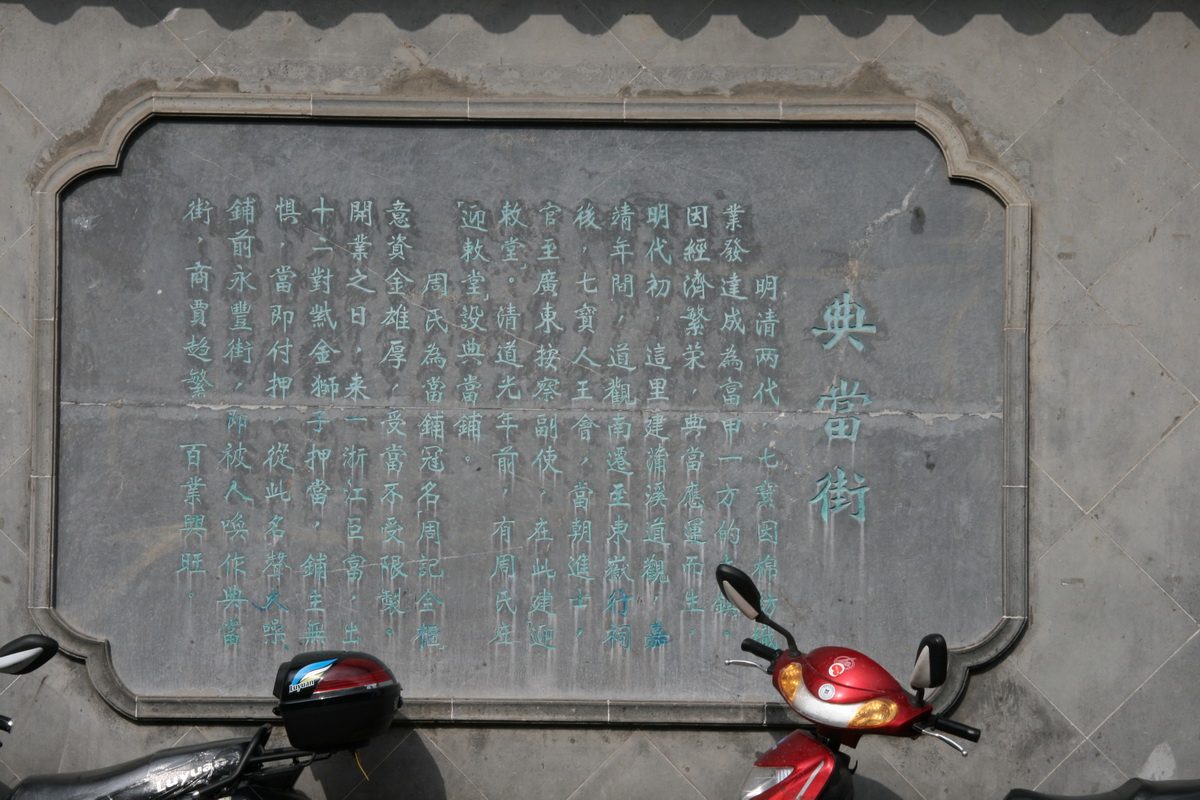 典當街
明清两代，七寶因棉紡織
業發達成為富甲一方的鎮。
因經濟繁荣，典當應運而生。
明代初，這里建蒲溪道觀，嘉
靖年間，道觀南遷至東嶽行祠
後，七寳人王會，當朝進士，
官至廣東按察副使，在此建迎
敕堂。清道光年前，有周氏在
「迎敕堂」設典當鋪。
周氏為當鋪冠名「周記金櫃」
意資金雄厚，受當不受限製。
開業之日，来一浙江巨富，出
十二對紫金獅子押當，鋪主無
惧，當即付押，從此名聲大噪，
鋪前永豐街，即被人喚作典當
街，商賈趋繁，百業興旺。
Luyuan
Luyuan